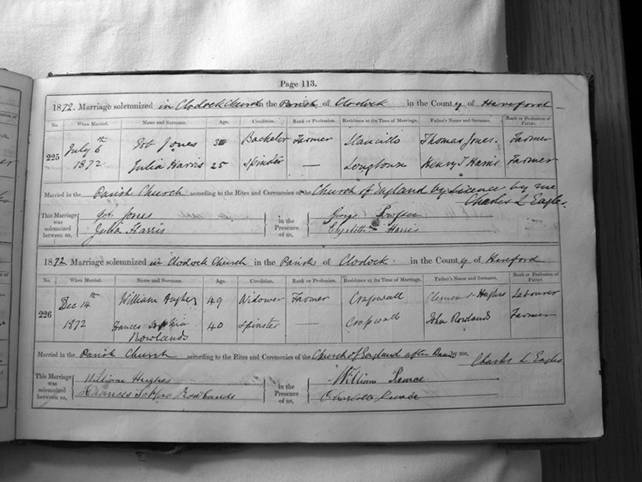 Page 113.
1872. Marriage solemnized in Clodock Church in the Parish of Clodock in the County of Hereford
No. When Married. Name and Surname. Age. Condition. Rank or Profession. Residence at the Time of Marriage. Father's Name and Surname. Rank or Profession of Father.
225 July 6th 1872 Job Jones Bachelor Farmer Thomas Jones Farmer
Julia Harris 25 Spinster — Longtown Henry T Harris Farmer
Married in the Parish Church according to the Rites and Ceremonies of the Church of England by Licence by me
Charles L Eagles.
This Marriage was solemnized between us, Job Jones in the Presence of us, George
Julia Harris Elizabeth Harris
1872 Marriage solemnized in Clodock Church in the Parish of Clodock in the County of Hereford
No. When Married. Name and Surname. Age. Condition. Rank or Profession. Residence at the Time of Marriage. Father's Name and Surname. Rank or Profession of Father.
226 Dec. 14th 1872 William Hughes 49 Widower Farmer Craswall Hughes Labourer
Frances Sophia Rowlands 40 Spinster — Craswall John Rowlands Farmer
Married in the Parish Church according to the Rites and Ceremonies of the Church of England after Banns by me, Charles L Eagles
This Marriage was solemnized between us, William Hughes in the Presence of us, William
Frances Sophia Rowlands Charlotte